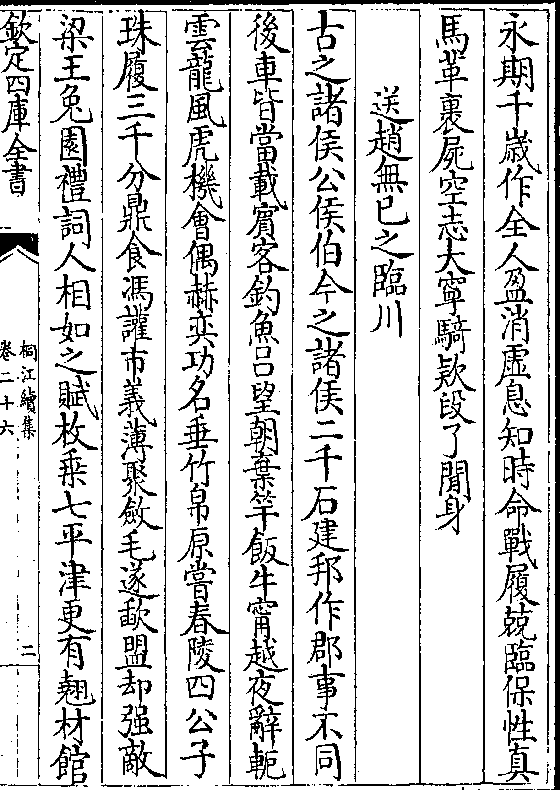 永期千歳作全人盈消虛息知時命戰履兢臨保性真
馬革裹屍空志大寧騎款段了閒身
送趙無已之臨川
古之諸侯公侯伯今之諸侯二千石建邦作郡事不同
後車皆當載賓客釣魚吕望朝棄竿飯牛甯越夜辭軛
雲龍風虎機會偶赫奕功名垂竹帛原嘗春陵四公子
珠履三千分鼎食馮讙市義薄聚斂毛遂歃盟却强敵
梁王兔園禮詞人相如之賦枚乗七平津更有翹材館
欽定四庫全書
桐江續集
卷二十六
二